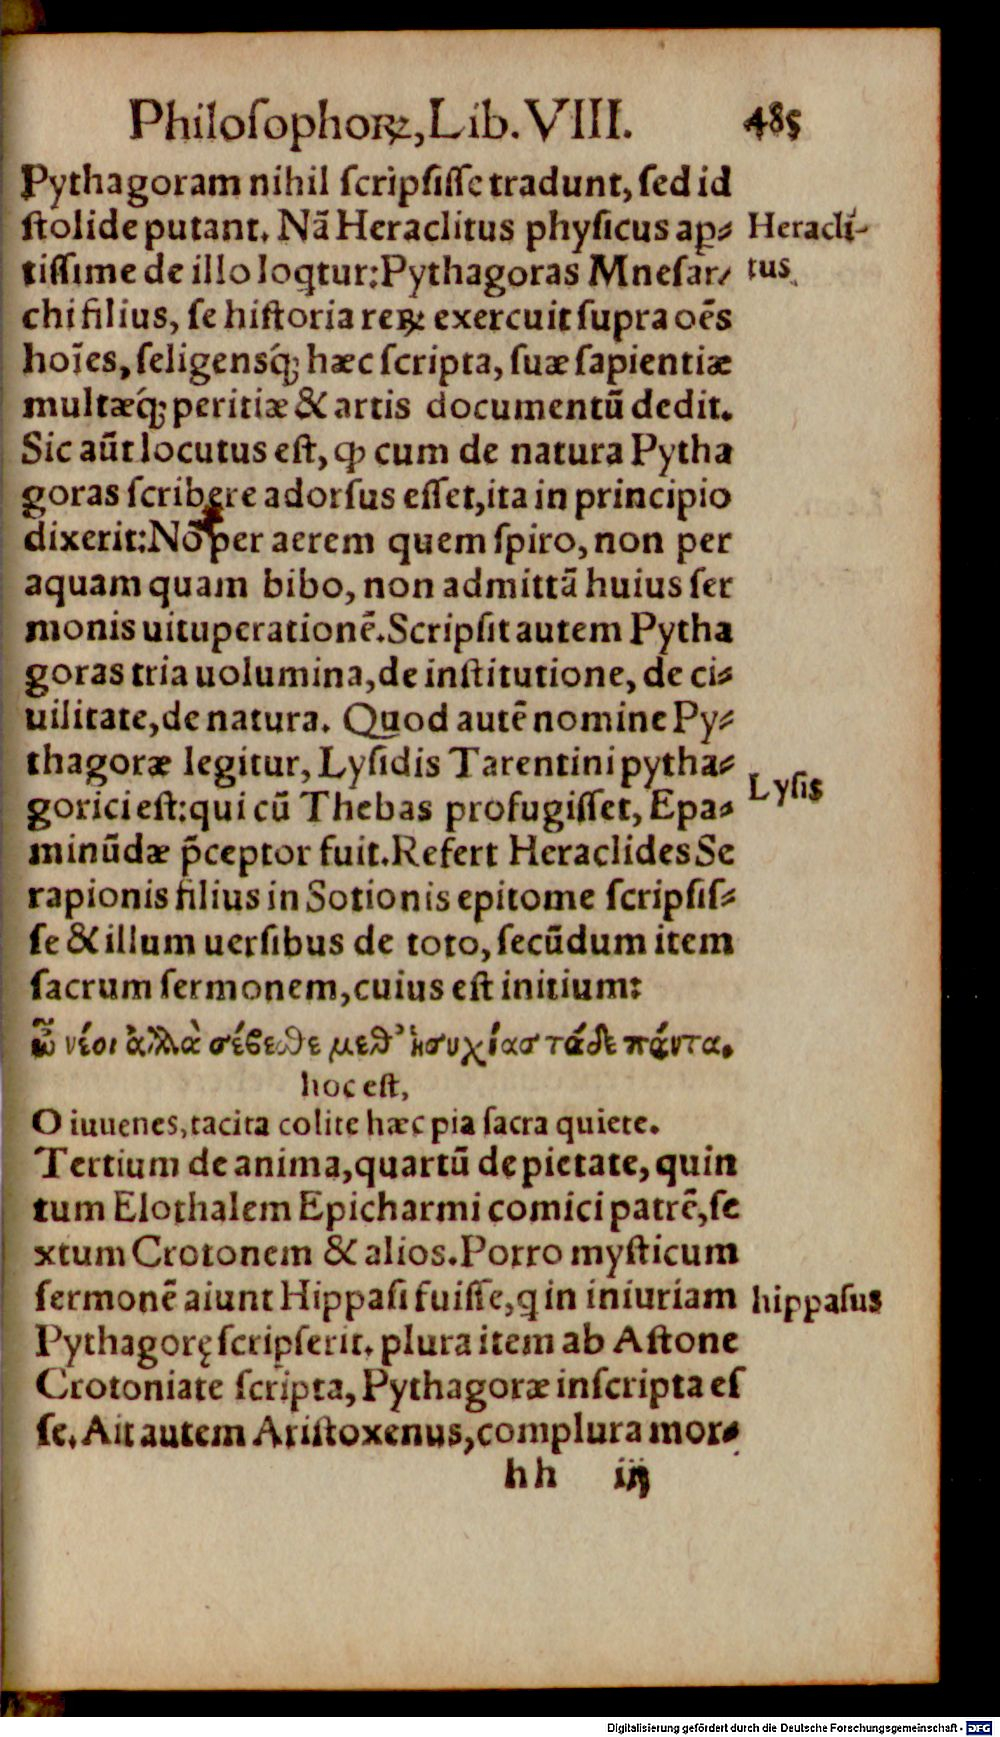 Philosophoꝝ, Lib. VIII. 485
Pythagoram nihil scripsisse tradunt, sed id
stolide putant. Nã Heraclitus physicus ap⸗
Heracli⸗
tus.
tissime de illo loqtur: Pythagoras Mnesar/
chi filius, se historia reꝝ exercuit supra oẽs
hoĩes, seligensq́; hæc scripta, suæ sapientiæ
multæq́; peritiæ & artis documentũ dedit.
Sic aũt locutus est, ꝙ cum de natura Pytha
goras scribere adorsus esset, ita in principio
dixerit: Nõ per aerem quem spiro, non per
aquam quam bibo, non admittã huius ser
monis uituperationẽ. Scripsit autem Pytha
goras tria uolumina, de institutione, de ci⸗
uilitate, de natura. Quod autẽ nomine Py⸗
thagoræ legitur, Lysidis Tarentini pytha⸗
Lysis
gorici est: qui cũ Thebas profugisset, Epa⸗
minũdæ p̃ceptor fuit. Refert Heraclides Se
rapionis filius in Sotionis epitome scripsis⸗
se & illum uersibus de toto, secũdum item
sacrum sermonem, cuius est initium:
ὦ νέοι ἀλλὰ σέβεσθε μεθ' ἡσυχίασ τάδε πάντα.
hoc est,
O iuuenes, tacita colite hæc pia sacra quiete.
Tertium de anima, quartũ de pietate, quin
tum Elothalem Epicharmi comici patrẽ, se
xtum Crotonem & alios. Porro mysticum
sermonẽ aiunt Hippasi fuisse, q in iniuriam
hippasus
Pythagorę scripserit. plura item ab Astone
Crotoniate scripta, Pythagoræ inscripta es
se. Ait autem Aristoxenus, complura mor⸗
hh iij
Digitalisierung gefördert durch die Deutsche Forschungsgemeinschaft - DFG